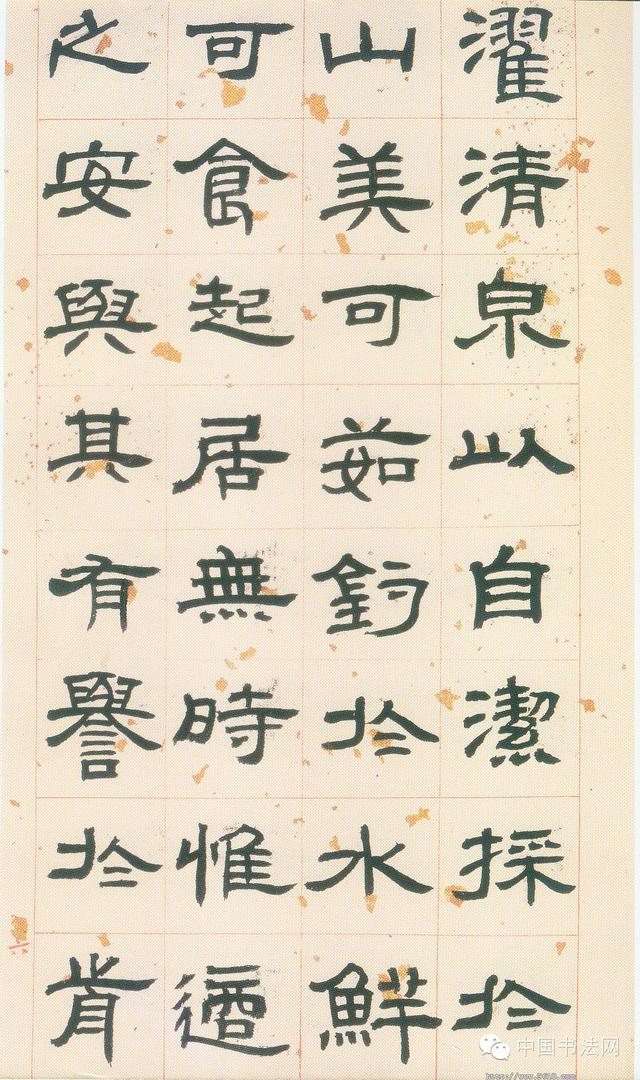 濯清泉以自潔採於
山美可茹釣於水鮮
可食起居無時惟適
之安與其有譽於前
中国书法网